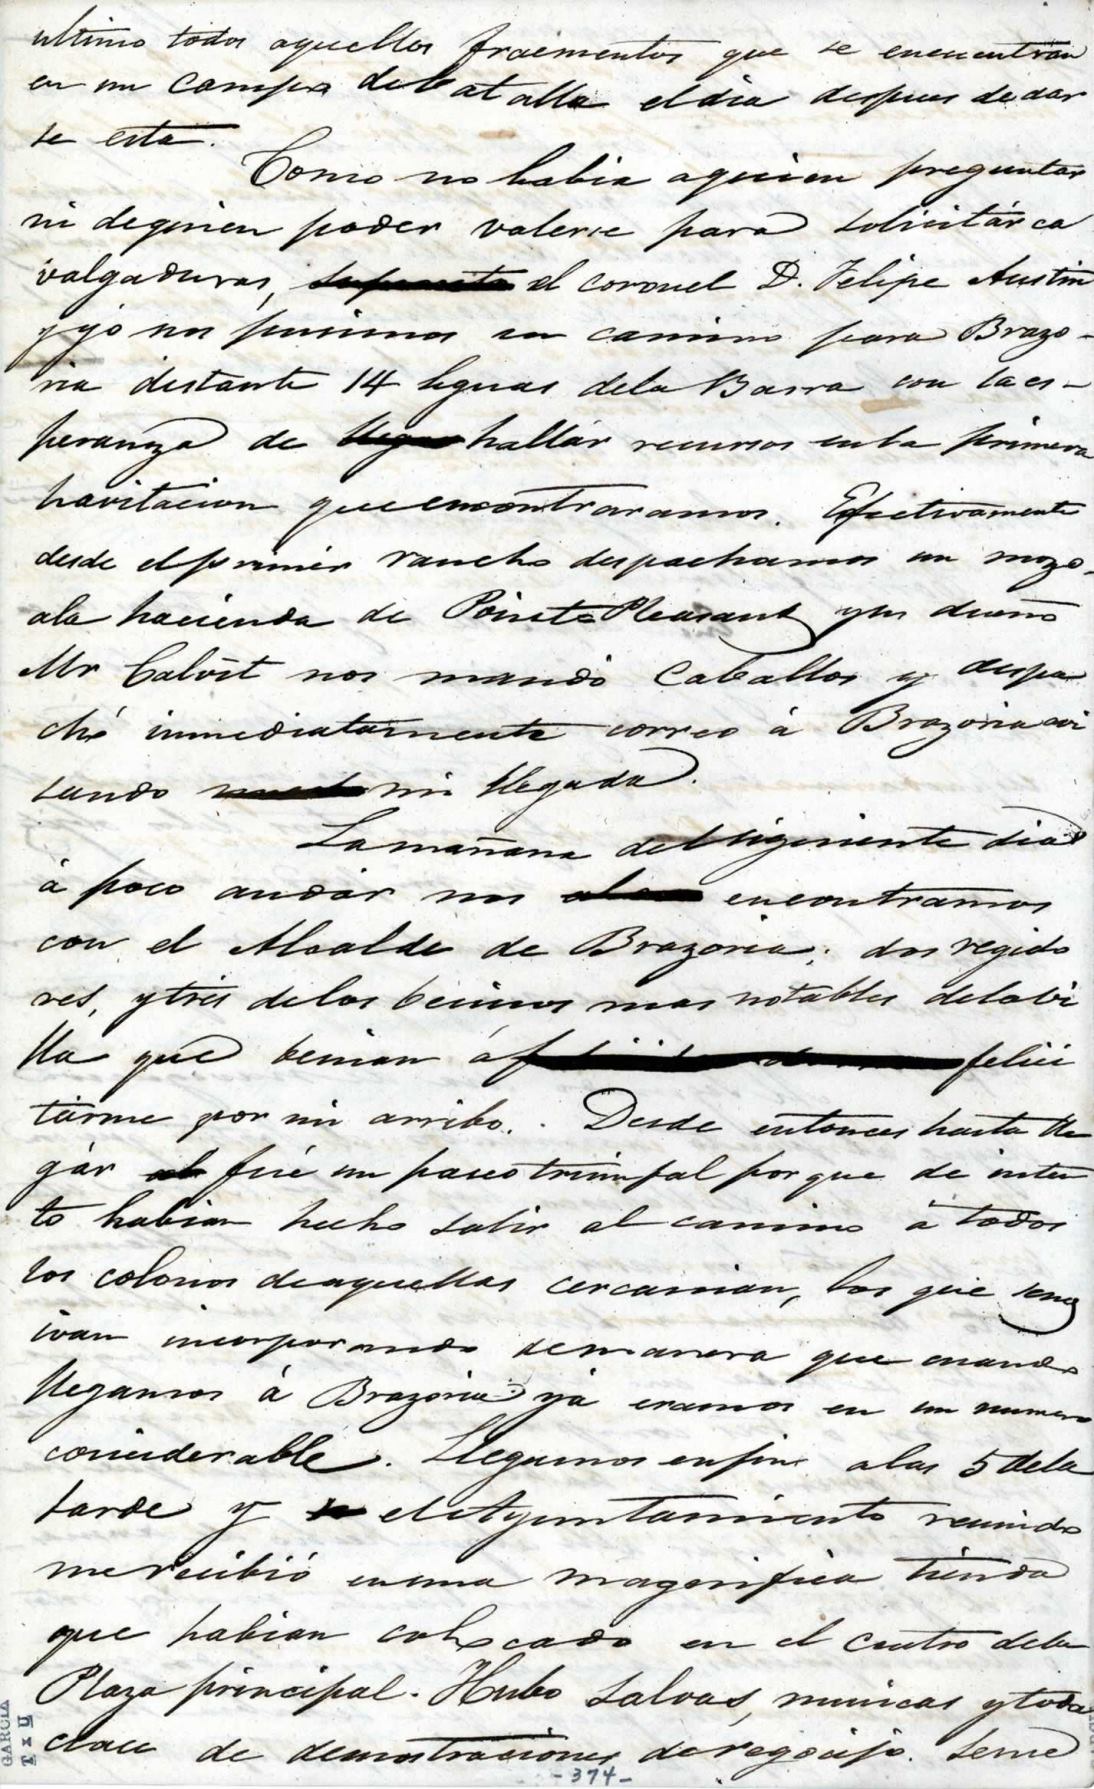 ultimo todos aquellos fracmentos que se encuentran
en un campo de batalla el dia despues de dar
se esta.
Como no habia aquien preguntar
ni dequien poder valerse para solicitár ca
valgaduras, el coronel D. Felipe Austin
y yo nos pusimos en camino para Brazo-
ria distante 14 leguas dela Barra con la es-
peranza de hallár recursos enla primera
havitacion que encontraramos. Efectivamente
desde el primér rancho despachamos un mozo
ala hacienda de Pointe Pleasant y su dueño
Mr Calvit nos mandó Caballos y despa
ché inmediatamente correo á Brazoria avi
sando mi llegada.
La mañana del siguiente dia
á poco andár nos encontramos
con el Alcalde de Brazoria; dos regido
res, y tres delos becinos mas notables dela vi
lla que benian á felici
tárme por mi arribo. Desde entonces hasta lle
gár fué un paseo triunfal por que de inten
to habian hecho salir al camino á todos
los colonos de aquellas cercanian, los que senos
ivan incorporando demanera que cuando
llegamos á Brazoria yá eramos en un numero
considerable. Llegamos enfin alas 5 dela
tarde y el Ayuntamiento reunido
me recibió en una magnifica tienda
que habian colocado en el centro dela
Plaza principal. Hubo salvas, musicas y toda
clace de demostraciones de regocijo. Seme
-374-
GARCIA
TxU